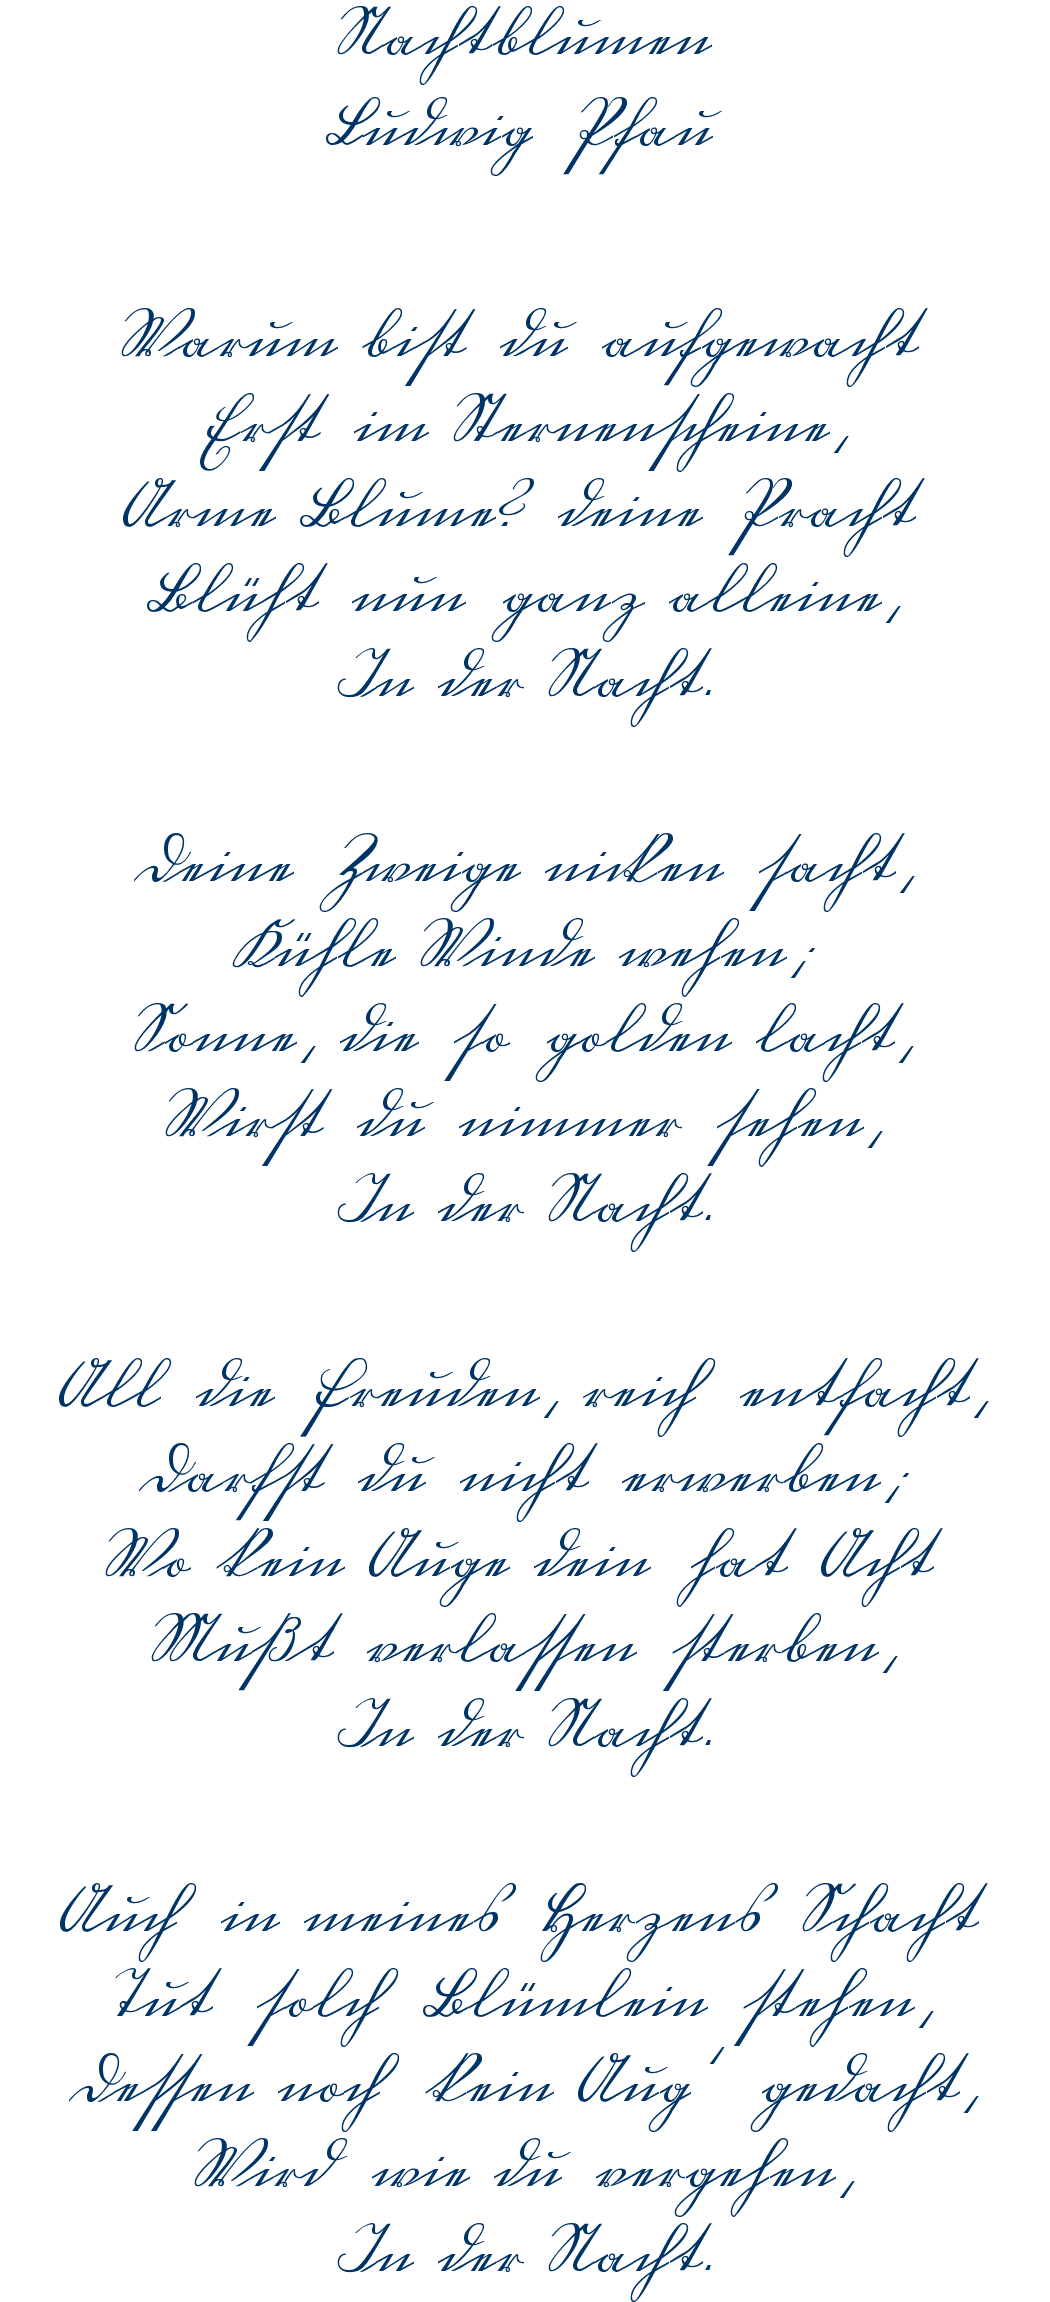 Nachtblumen
Ludwig Pfau
Warum bist du aufgewacht
Erst im Sternenscheine,
Arme Blume? deine Pracht
Blüht nun ganz alleine,
In der Nacht.
Deine Zweige nicken sacht,
Kühle Winde wehen;
Sonne, die so golden lacht,
Wirst du nimmer sehen,
In der Nacht.
All die Freuden, reich entfacht,
Darfst du nicht erwerben;
Wo kein Auge dein hat Acht
Mußt verlassen sterben,
In der Nacht.
Auch in meines Herzens Schacht
Tut solch Blümlein stehen,
Dessen noch kein Aug' gedacht,
Wird wie du vergehen,
In der Nacht.